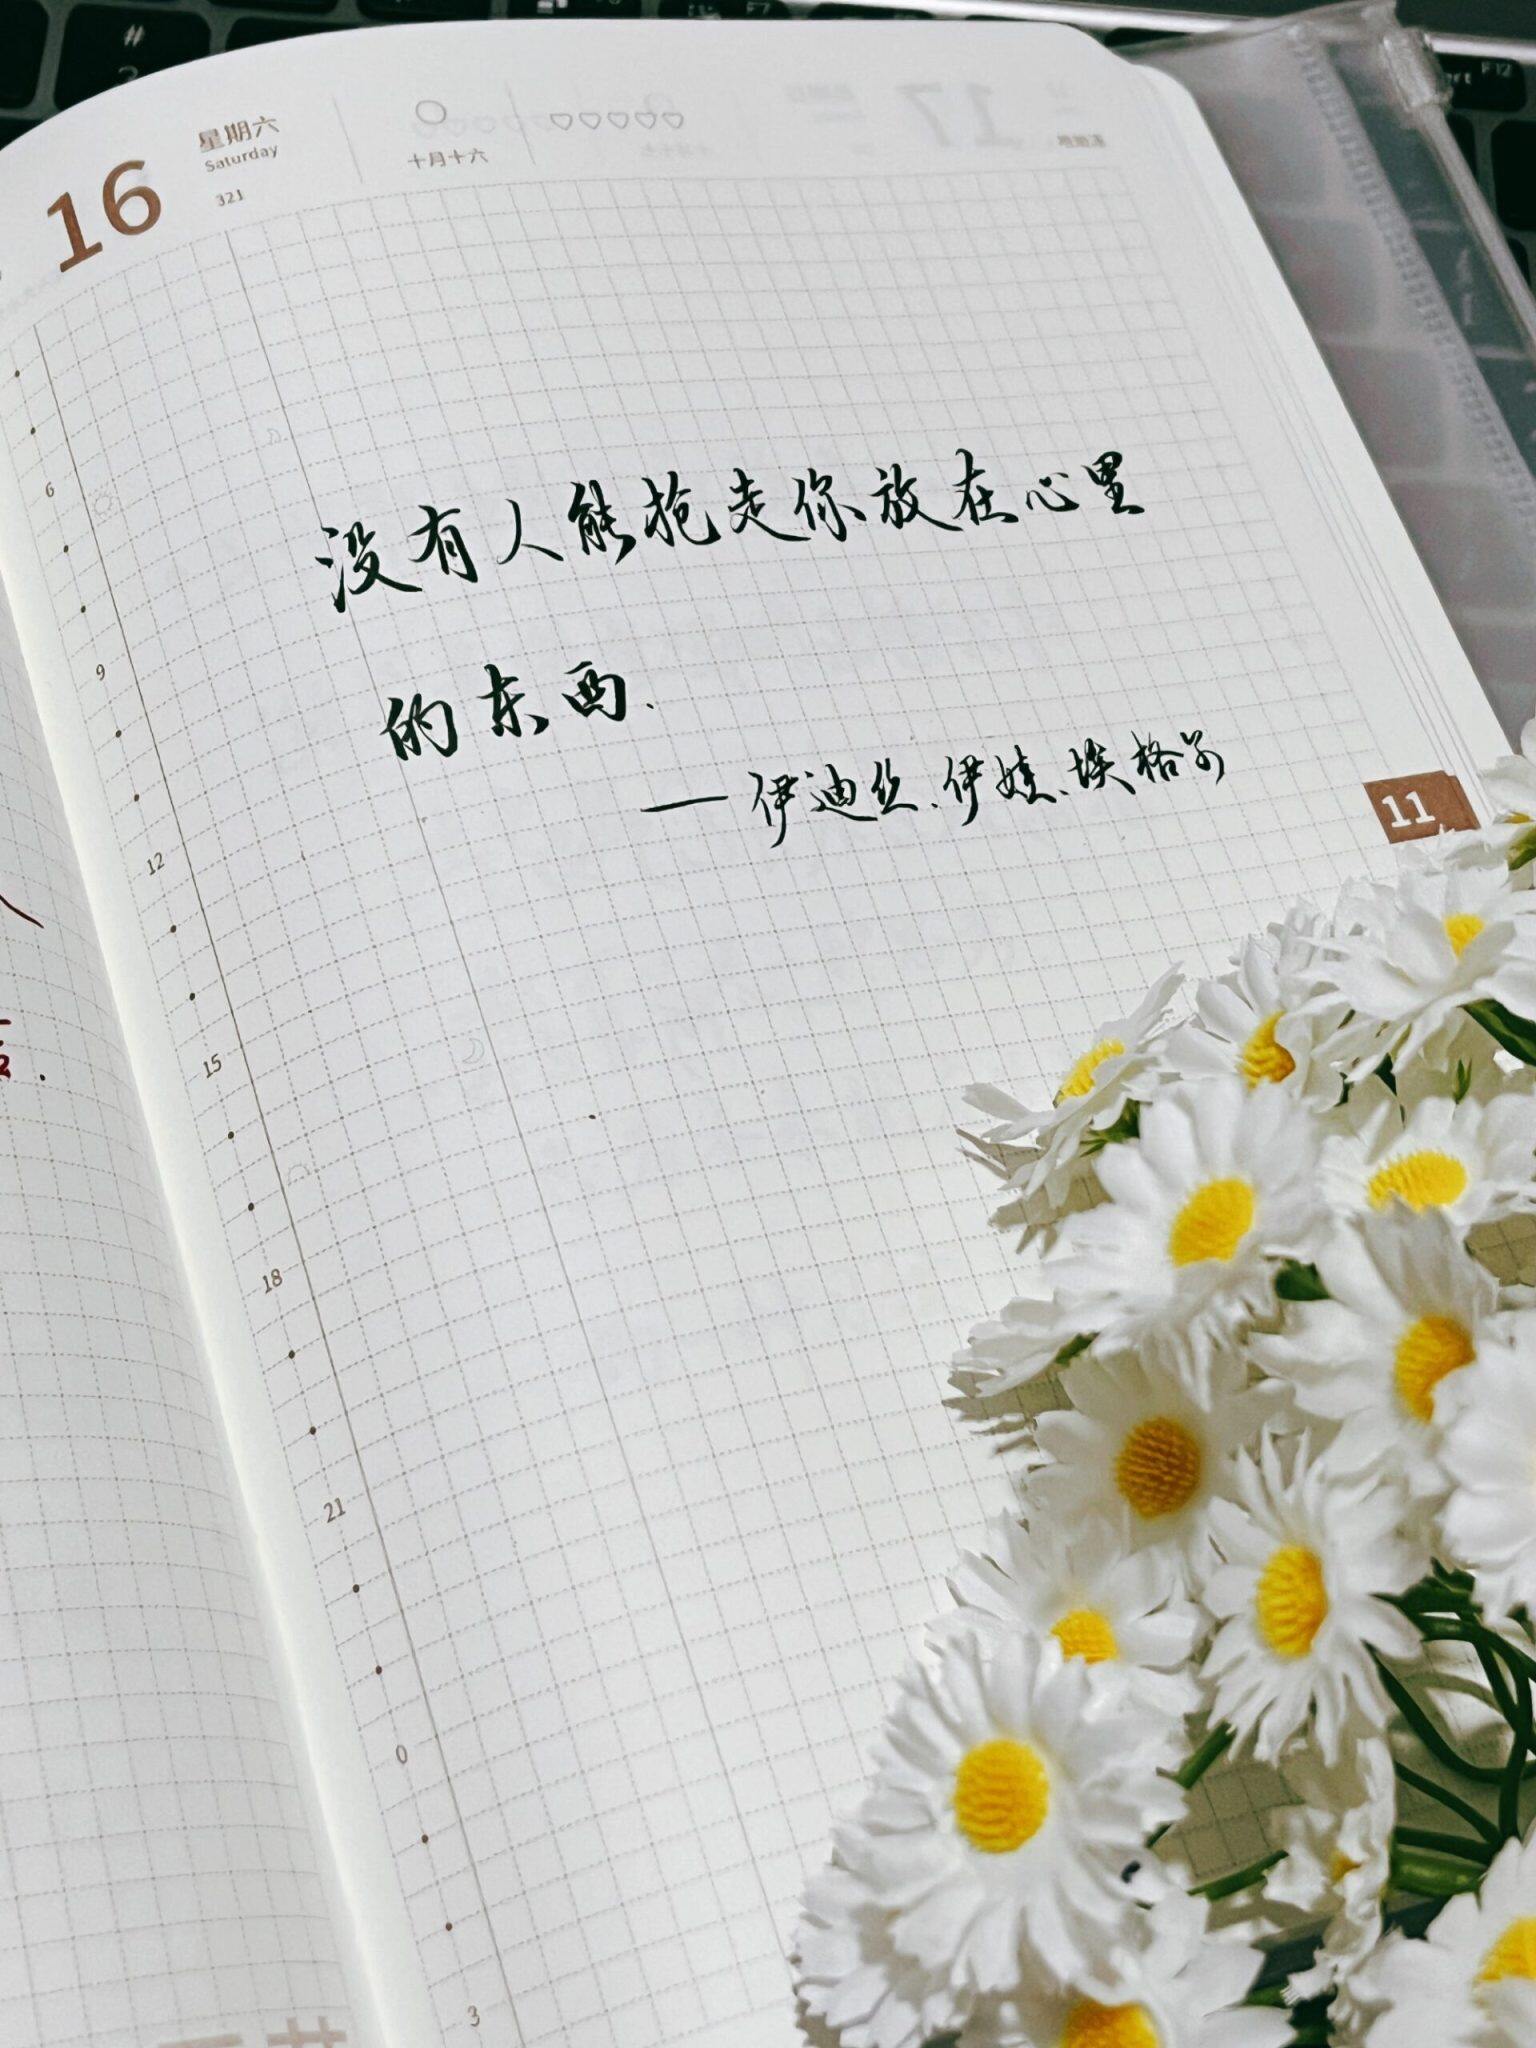 16
星期六
Saturday
321
十月十六
没有人能抢走你放在心里
的东西.
——伊迪丝.伊娃.埃格尔
11
6
9
12
15
18
21
0
3
17
F7
F12
#
3